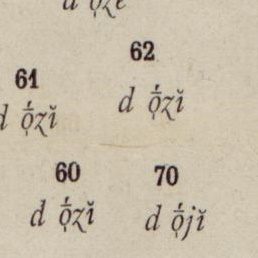 62
61
d ọ̄́zĭ
d ọ̄́zĭ
60
70
d ọ̄́zĭ
d ọ̄́jĭ